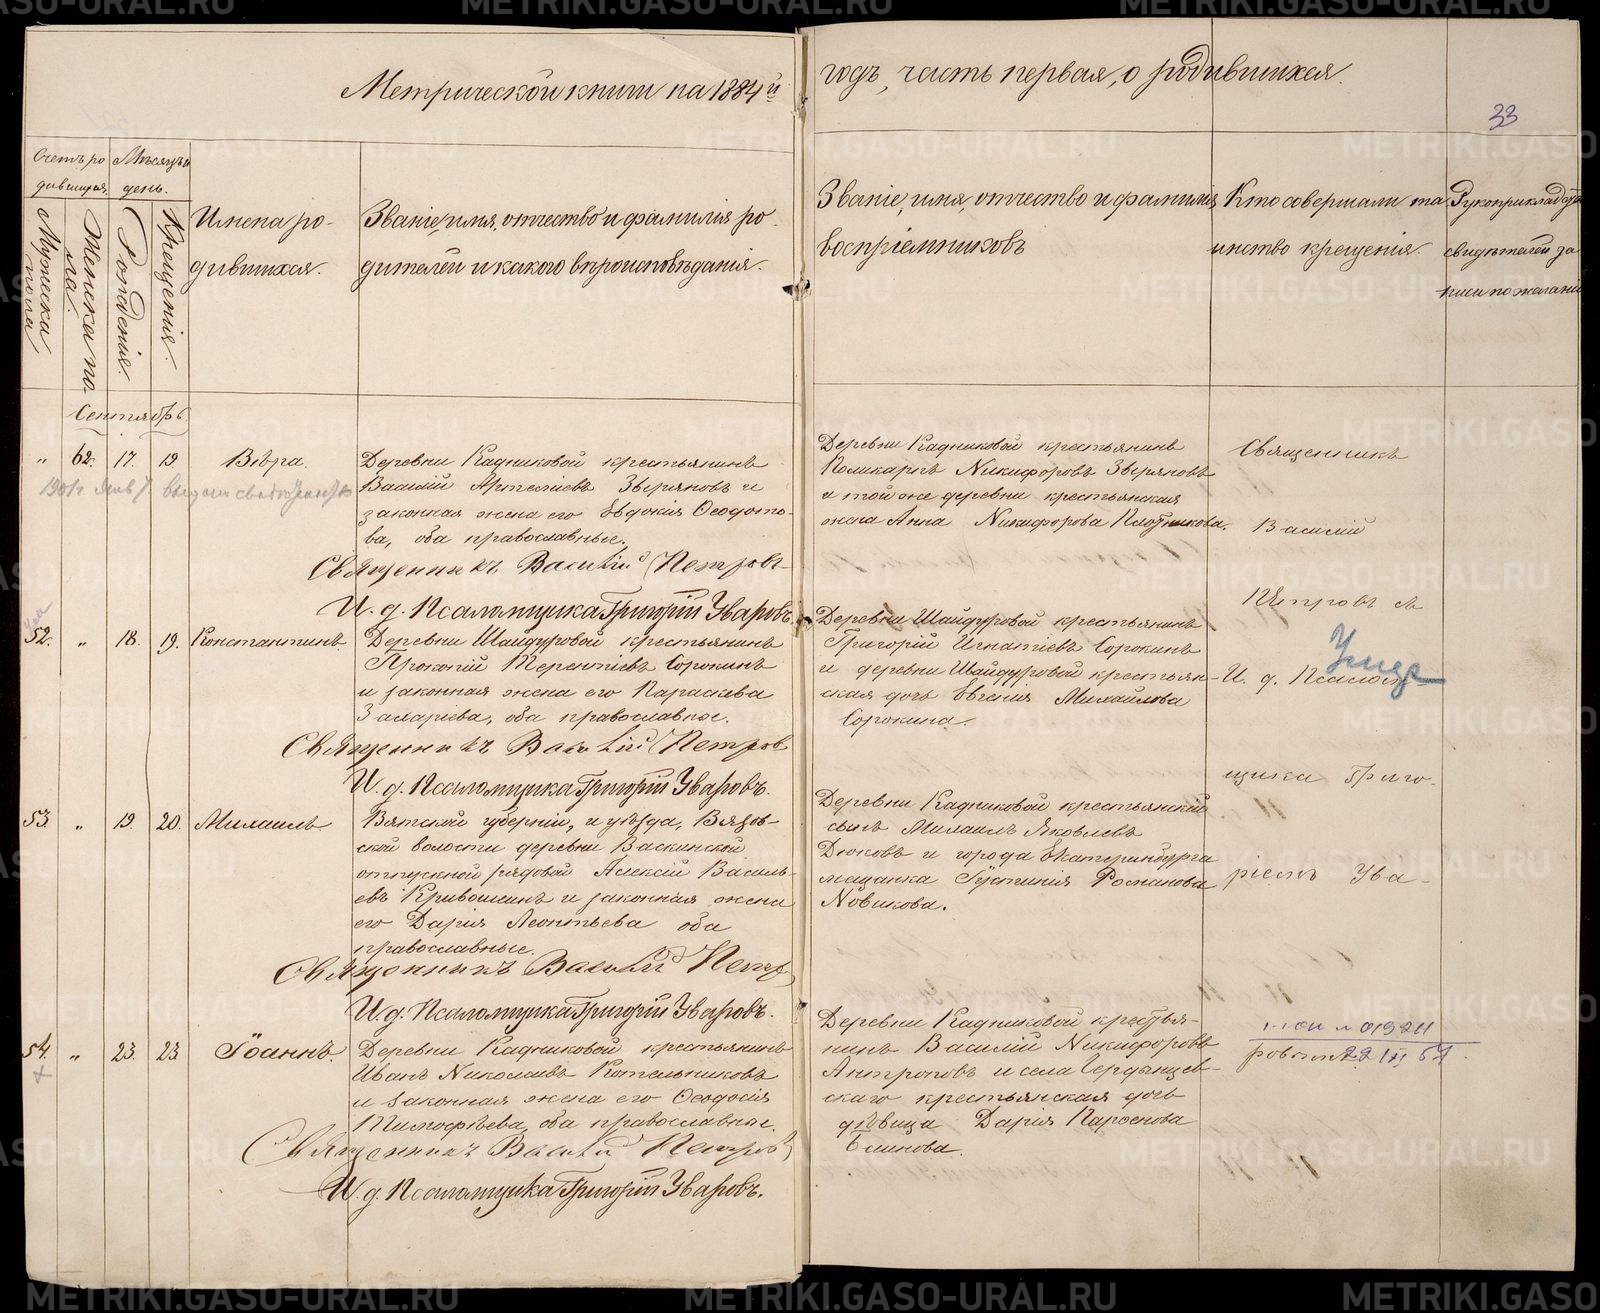 Метрической книги на 1884й годъ, часть первая, о родившихся.
33
Счетъ ро
дившихся.
Мѣсяцъ и
день.
Мужеска
пола
Женска по-
ла.
Рожденія.
Крещенія.
Имена ро-
дившихся.
Званіе, имя, отчество и фамилія ро
дителей и какого вѣроисповѣданія.
Званіе, имя, отчество и фамилія
воспріемниковъ
Кто совершали та
инство крещенія.
Рукоприкладств
свидѣтелей за
писи по желані
Сентябрь
" 62. 17. 19 Вѣра.
Деревни Кадниковой крестьянинъ
Василій Артеміевъ Зверяновъ и
законная жена его Евдокія Ѳеодото-
ва, оба православные.
Священникъ Василій Петровъ
И. д. Псаломщика Григорій Уваровъ.
Деревни Кадниковой крестьянинъ
Поликарпъ Никифоровъ Зверяновъ
и той же деревни крестьянская
жена Анна Никифорова Плотникова.
Священникъ
Василій
Петровъ съ
И. д. Псалом-
щика Григо-
ріемъ Ува-
ровым
52. " 18. 19. Константинъ
Деревни Шайдуровой крестьянинъ
Прокопій Терентіевъ Сорокинъ
и законная жена его Параскева
Захаріева, оба православные.
Священникъ Василій Петров
И. д. Псаломщика Григорій Уваровъ.
Деревни Шайдуровой крестьянинъ
Григорій Игнатіевъ Сорокинъ
и деревни Шайдуровой крестьян-
ская дочь Евгенія Михайлова
Сорокина.
53. " 19. 20. Михаилъ
Вятской губерніи, и уѣзда, Вязов-
ской волости деревни Васкинской
отпускной рядовой Алексій Василь-
евъ Кривошеинъ и законная жена
его Дарія Леонтьева оба
православные.
Священникъ Василій Петр
И. д. Псаломщика Григорій Уваровъ.
Деревни Кадниковой крестьянскій
сынъ Михаилъ Яковлевъ
Дюковъ и города Екатеринбурга
мещанка Іустинія Романова
Новикова.
54. " 23. 23 Іоаннъ.
Деревни Кадниковой крестьянинъ
Иванъ Николаевъ Котельниковъ
и законная жена его Ѳеодосія
Тимофѣева, оба православные.
Священникъ Василій Петров
И. д. Псаломщика Григорій Уваровъ.
Деревни Кадниковой крестья-
нинъ Василій Никифоровъ
Антроповъ и села Сердынцев-
скаго крестьянская дочь
дѣвица Дарія
METRIKI.GASO-URAL.RU